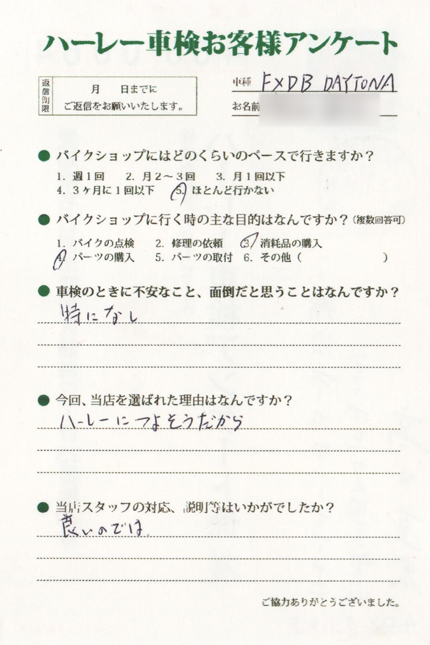 ハーレー車検お客様アンケート
返信期限
月　日までに
ご返信をお願いいたします。
車種 FXDB DAYTONA
お名前
● バイクショップにはどのくらいのペースで行きますか？
1. 週1回　2. 月2〜3回　3. 月1回以下
4. 3ヶ月に1回以下　5. ほとんど行かない
● バイクショップに行く時の主な目的はなんですか？(複数回答可)
1. バイクの点検　2. 修理の依頼　3. 消耗品の購入
4. パーツの購入　5. パーツの取付　6. その他（　　　　　）
● 車検のときに不安なこと、面倒だと思うことはなんですか？
特になし
● 今回、当店を選ばれた理由はなんですか？
ハーレーにつよそうだから
● 当店スタッフの対応、説明等はいかがでしたか？
良いのでは
ご協力ありがとうございました。